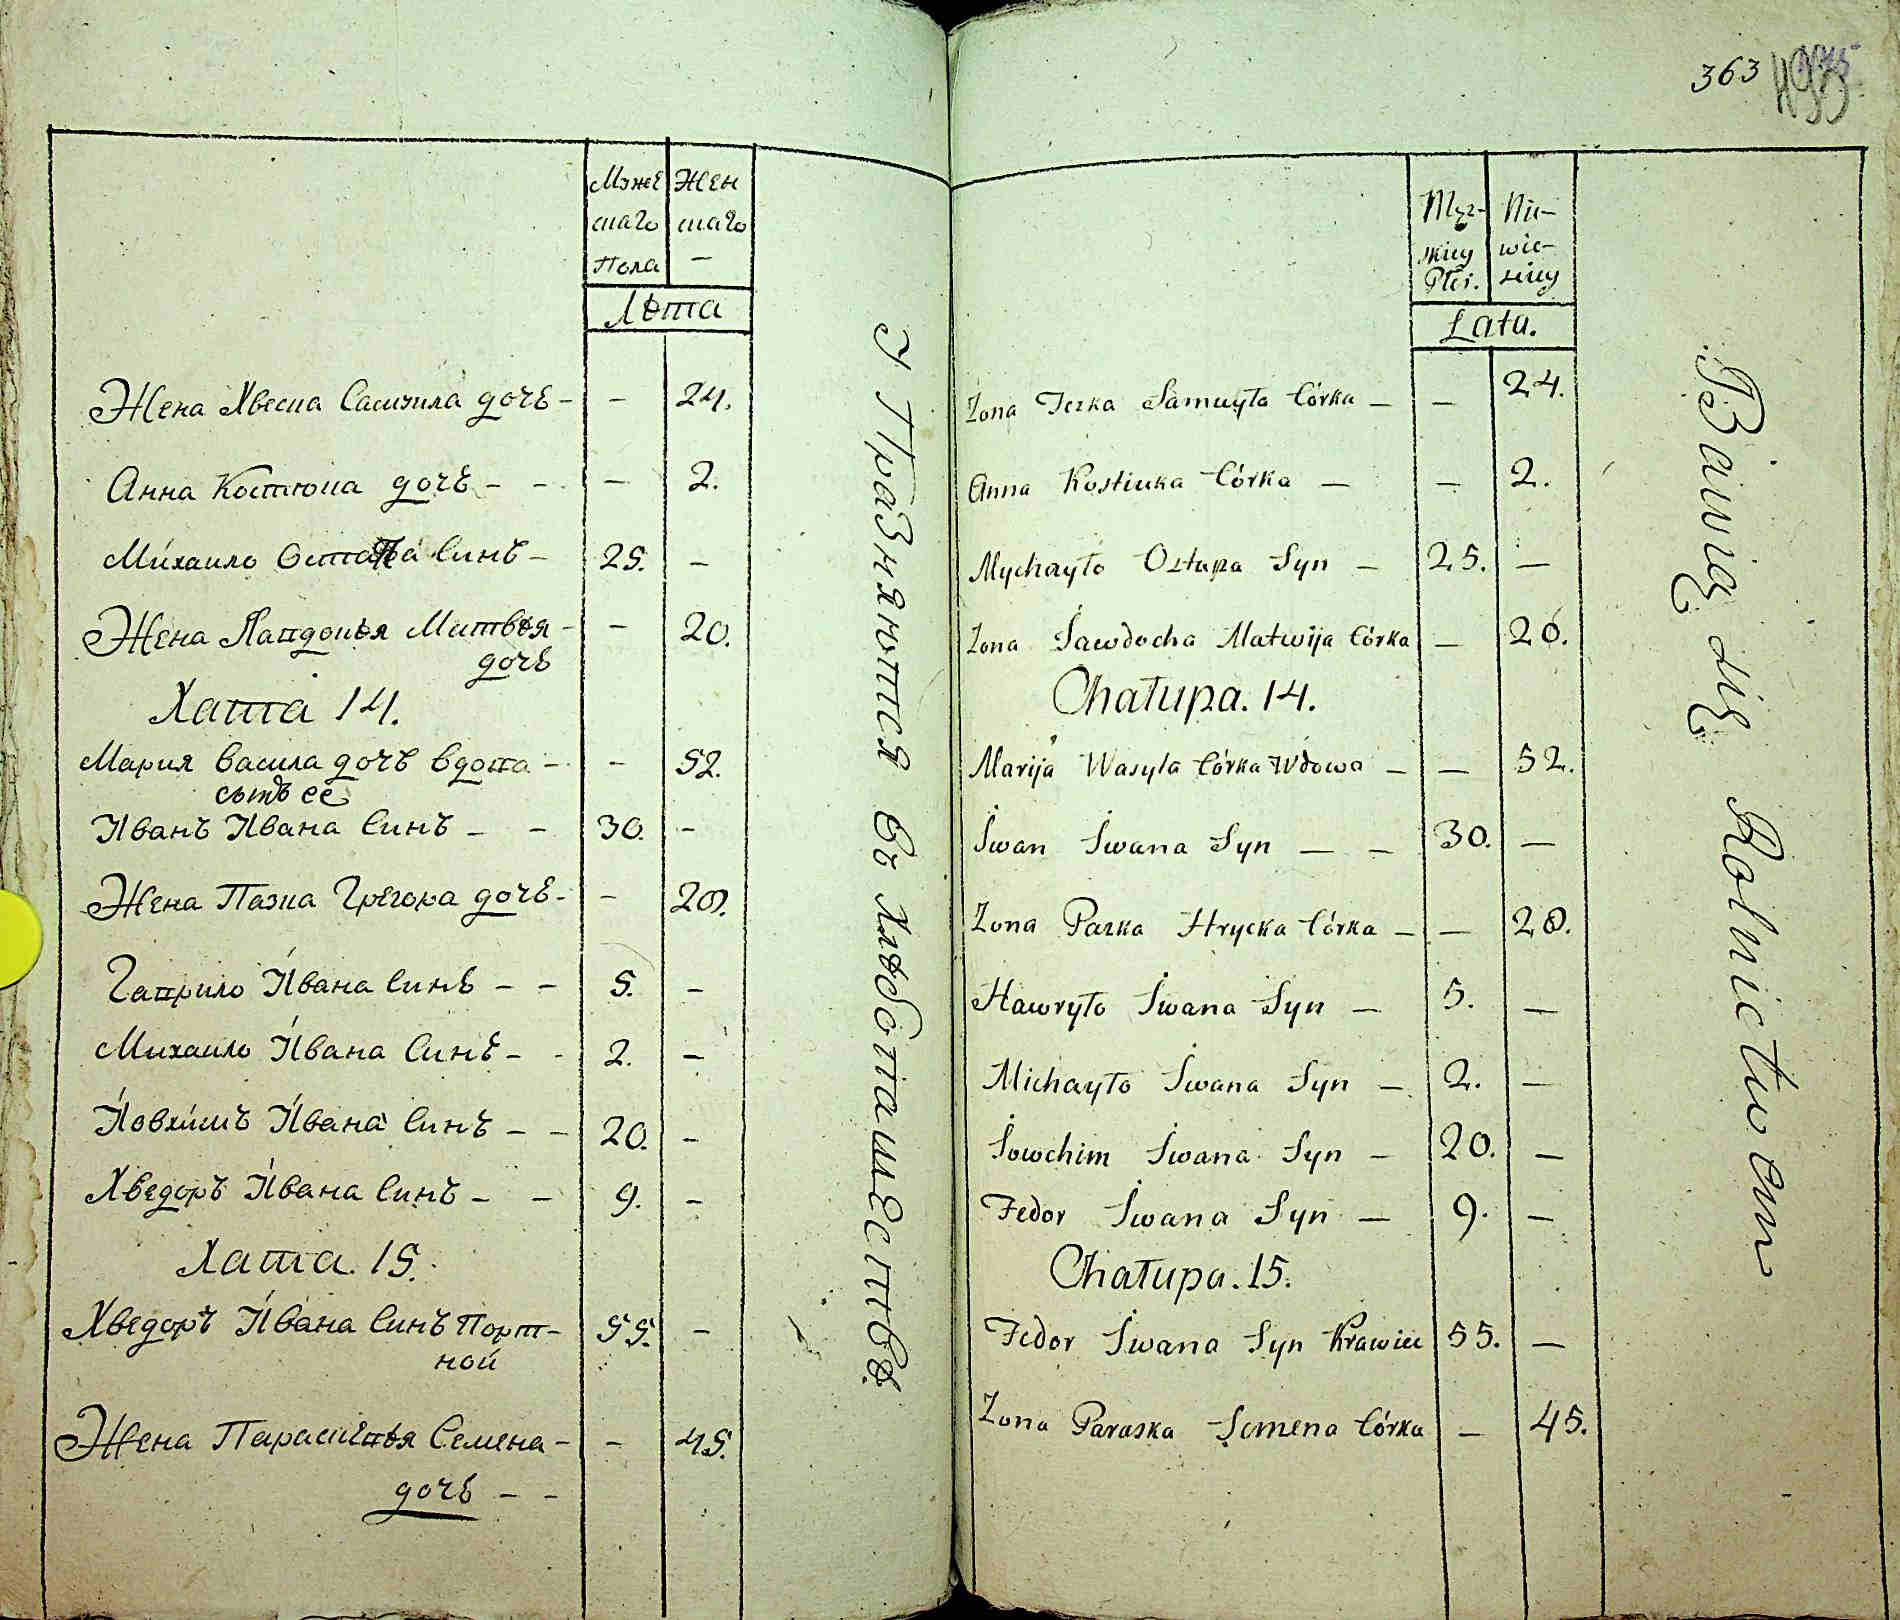 Мэже Жен
скаго скаго
Пола —
Лѣта
Жена Хвеска Самэила дочъ — — 24.
Анна Костюка дочъ — — — 2.
Михаило Остапа Синъ — 25. —
Жена Явдокѣя Митвѣя — — 20.
дочъ
Хата 14.
Мария Васила дочъ Вдова — — 52.
сынъ ее
Иванъ Ивана Синъ — — 30. —
Жена Пазка Грегора дочъ — — 28.
Гаврило Ивана Синъ — — 5. —
Михаило Ивана Синъ — — 2. —
Иовхимъ Ивана Синъ — — 20. —
Хведоръ Ивана Синъ — — 9. —
Хата. 15.
Хведоръ Ивана Синъ Порт- 55. —
ной
Жена Параскевѣя Семена — — 45.
дочъ — —
Упражняются въ хлѣбопашествѣ.
363
Męz- Nie-
skiey wie-
Płci. sciey
Lata.
Zona Jezka Samuyła Córka — — 24.
Anna Kostiuka Córka — — 2.
Mychayło Ostapa Syn — 25. —
Zona Jawdocha Matwija Córka — 20.
Chałupa. 14.
Marija Wasyla Córka Wdowa — — 52.
Iwan Iwana Syn — — 30. —
Zona Pazka Hrycka Córka — — 28.
Hawryło Iwana Syn — 5. —
Michayło Iwana Syn — 2. —
Iowchim Iwana Syn — 20. —
Fedor Iwana Syn — 9. —
Chałupa. 15.
Fedor Iwana Syn Krawiec 55. —
Zona Paraska Semena Córka — 45.
Bawią się Rolnictwem